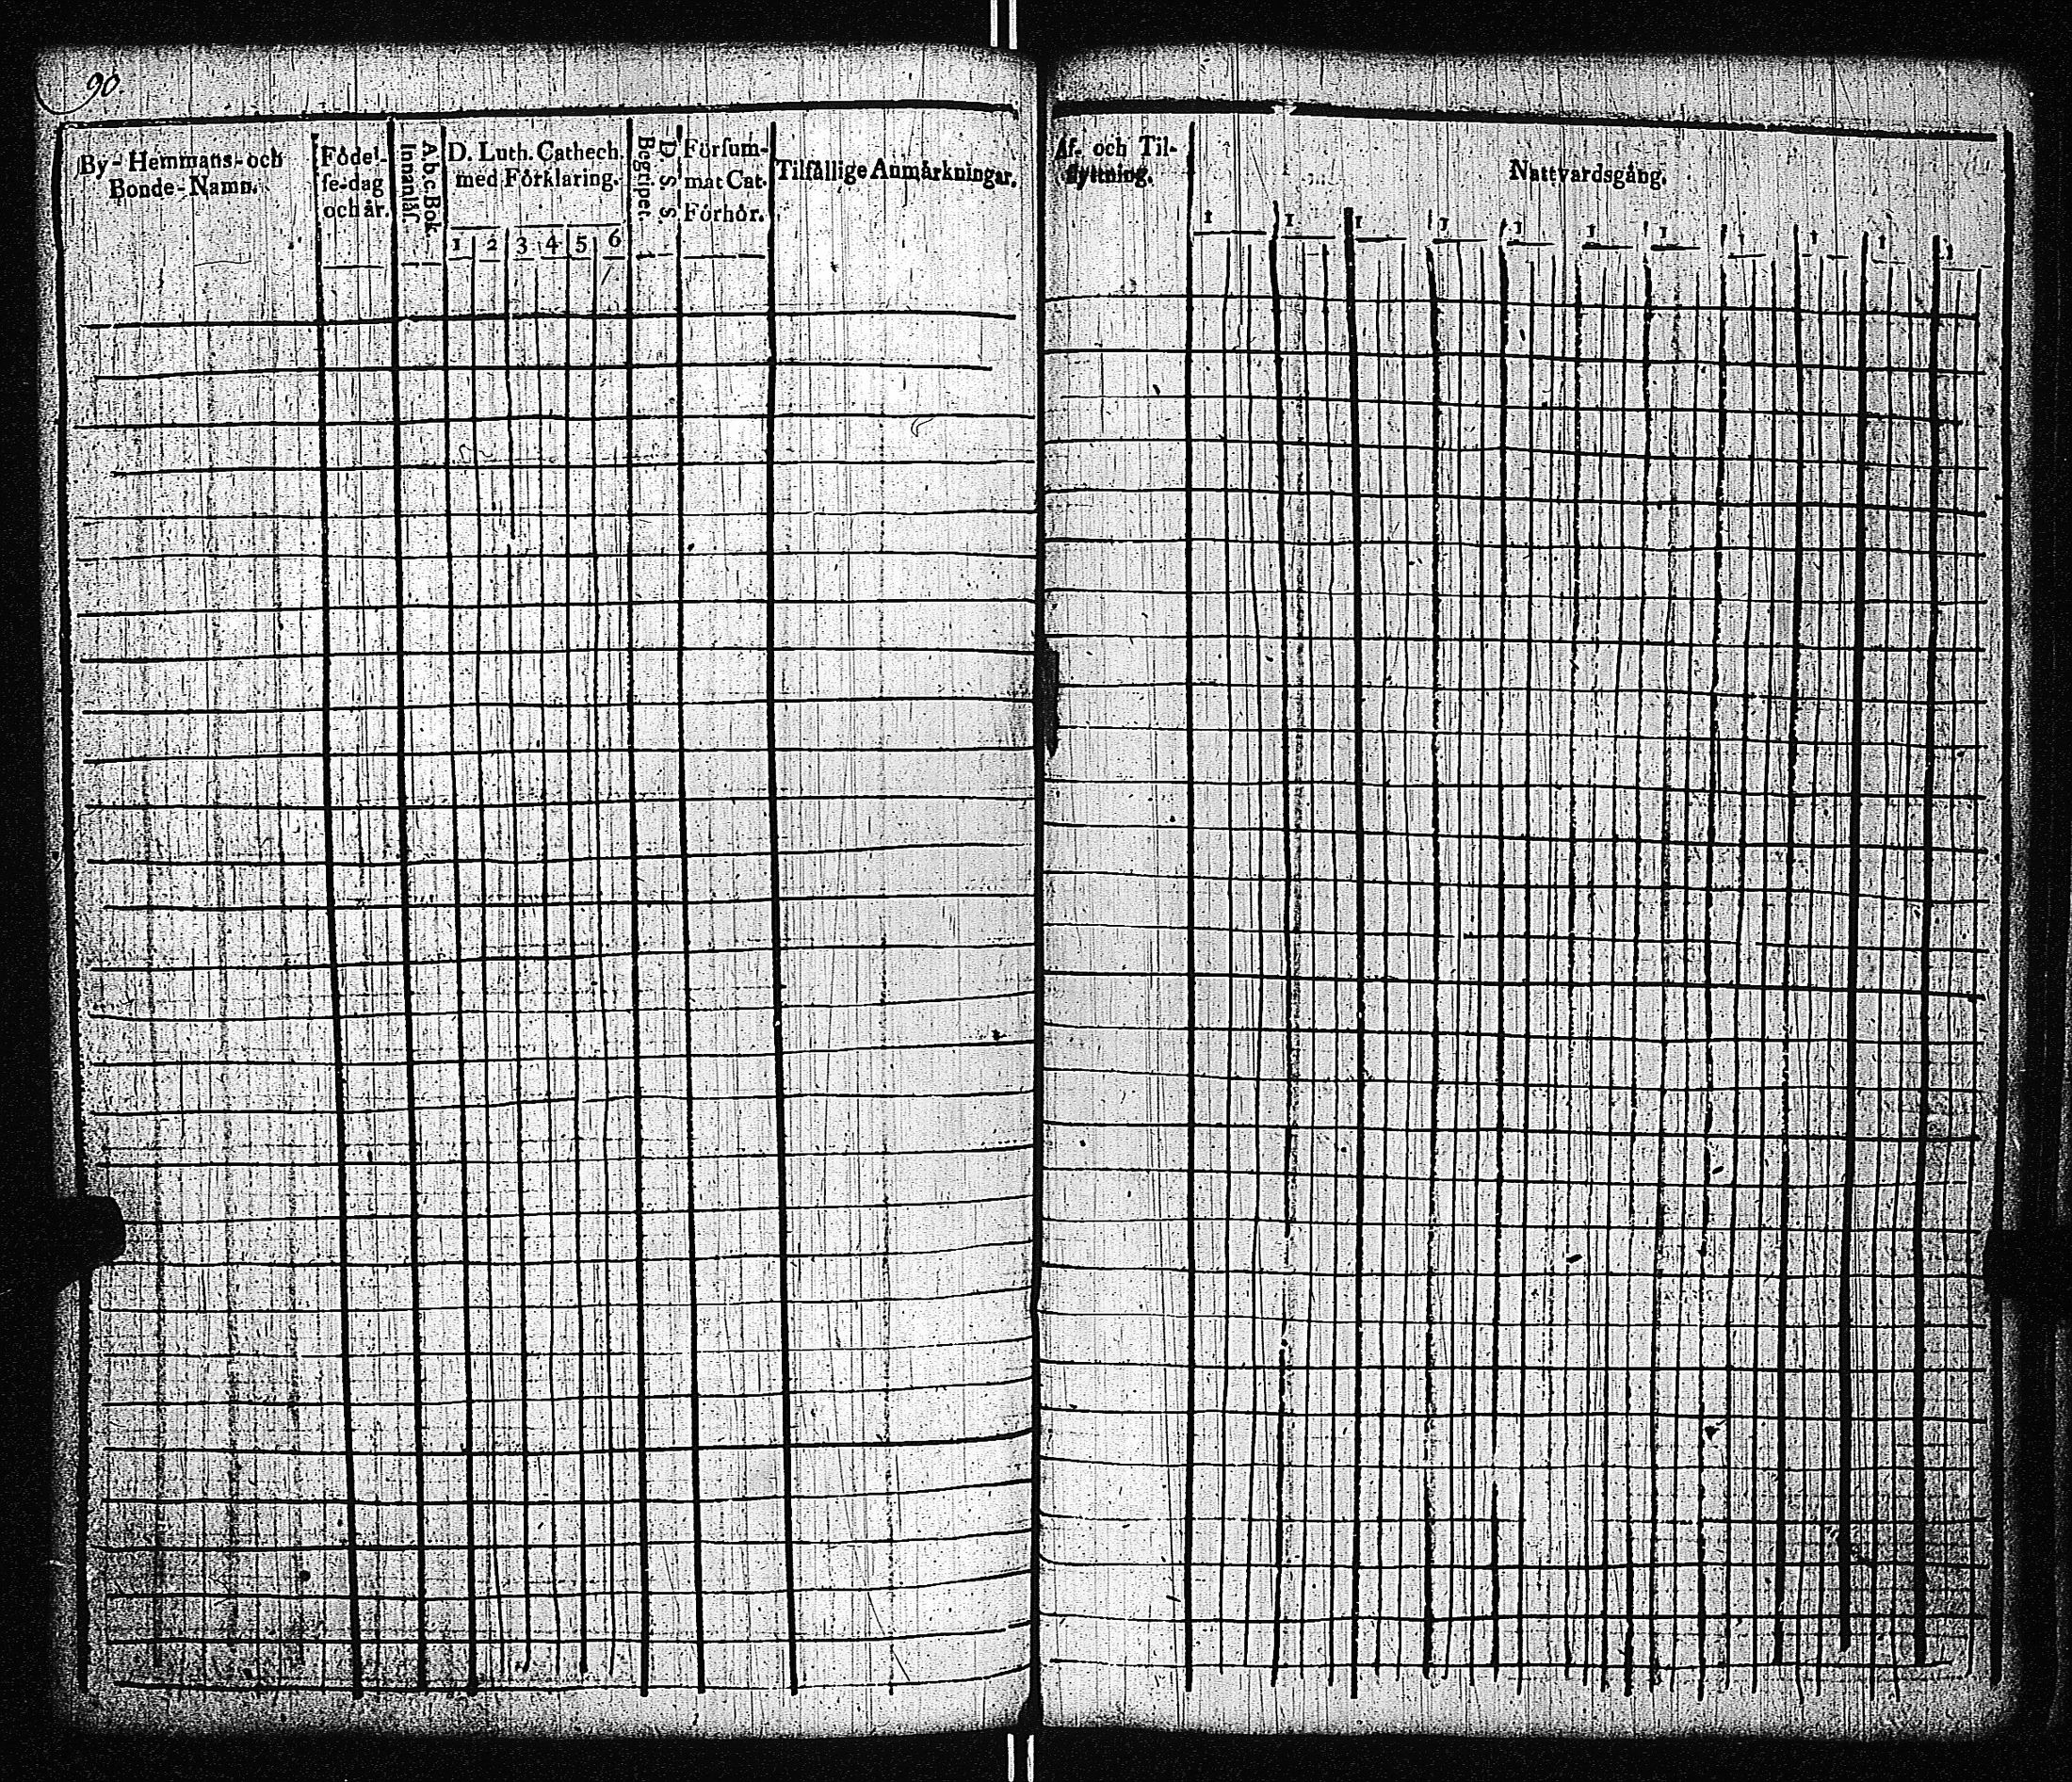 90
By- Hemmans- och
Bonde-Namn.
Födel-
se-dag
och år.
A.b.c.Bok.
Innanläs.
D. Luth. Cathech.
med Förklaring.
1 2 3 4 5 6
Begripet.
D. S. S.
Försum-
mat Cat.
Förhör.
Tilfällige Anmärkningar.
Af- och Til-
flyttning.
Nattvardsgång.
1 1 1 1 1 1 1 1 1 1 1